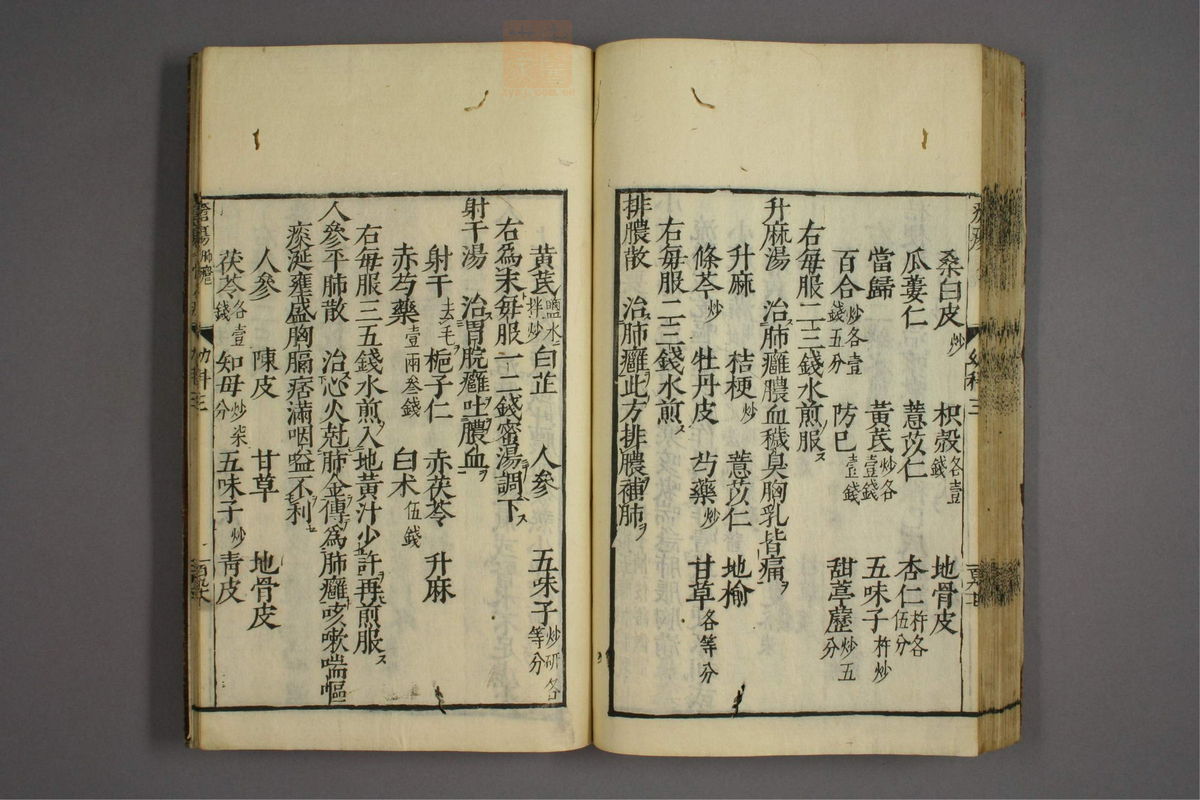 桑白皮炒 枳殼各壹錢 地骨皮
瓜蔞仁 薏苡仁 杏仁杵各伍分
當歸 黃芪炒各壹錢 五味子杵炒
百合炒各壹錢五分 防已壹錢 甜葶藶炒五分
右每服二三錢水煎服ス
升麻湯 治肺癰膿血穢臭胸乳皆痛
升麻 桔梗炒 薏苡仁 地榆
條芩炒 牡丹皮 芍藥炒 甘草各等分
右每服二三錢水煎ス
排膿散 治肺癰此方排膿補肺
黃芪鹽水拌炒 白芷 人參 五味子炒研各等分
右爲末每服一二錢蜜湯調下ス
射干湯 治胃脘癰吐膿血
射干去毛 梔子仁 赤茯苓 升麻
赤芍藥壹兩叁錢 白术伍錢
右每服三五錢水煎入地黃汁少許再煎服ス
人參平肺散 治心火尅肺金傳爲肺癰咳嗽喘嘔
痰涎壅盛胸膈痞滿咽嗌不利
人參 陳皮 甘草 地骨皮
茯苓各壹錢 知母炒柒分 五味子炒 青皮